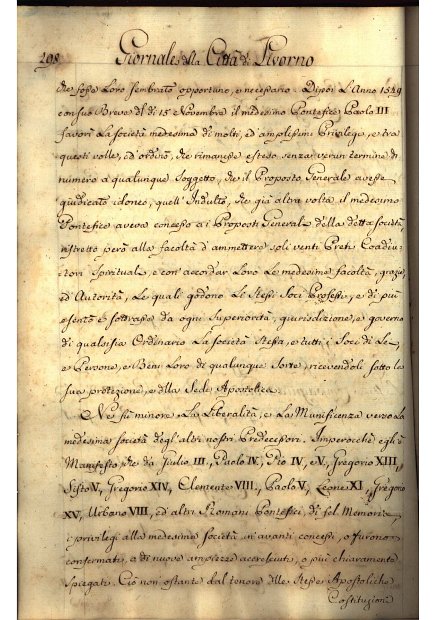 298 Giornale della Città di Livorno
che fosse Loro sembrato opportuno, e necessario. Dipoi L'Anno 1549
con suo Breve di di 15 Novembre il medesimo Pontefice Paolo III
favorì La Società medesima di molti, ed amplissimi Privilegi, e tra
questi volle, ed ordinò, che rimanesse esteso senza verun termine di
numero a qualunque Soggetto, che il Proposto Generale avesse
giudicato idoneo, quell'Indulto, che già altra volta il medesimo
Pontefice aveva concesso ai Proposti Generali della detta Società,
ristretto però alla facoltà d'ammettere soli venti Preti Coadiu-
tori Spirituali, e con'accordar Loro Le medesime facoltà, grazie,
ed Autorità, Le quali godono Li Stessi Soci Professi, e di più
esentò e sottrasse da ogni Superiorità, giurisdizione, e governo
di qualsisia Ordinario La Società Stessa, e tutti i Soci di Lei,
e Persone, e Beni Loro di qualunque Sorte, ricevendoli sotto la
sua protezione, e della Sede Apostolica.
Nè fù minore La Liberalità, e La Munificenza verso La
medesima Società degl'altri nostri Predecessori. Imperocchè egli è
Manifesto, che da Giulio III., Paolo IV., Pio IV., e V., Gregorio XIII.,
Sisto V., Gregorio XIV., Clemente VIII., Paolo V., Leone XI., Gregorio
XV., Urbano VIII., ed altri Romani Pontefici, di fel. Memoria,
i privilegi alla medesima Società in'avanti concessi, o furono
confermati, o di nuove ampiezze accresciuti, o più chiaramente
spiegati. Ciò non ostante dal tenore delle Stesse Apostoliche
Costituzioni